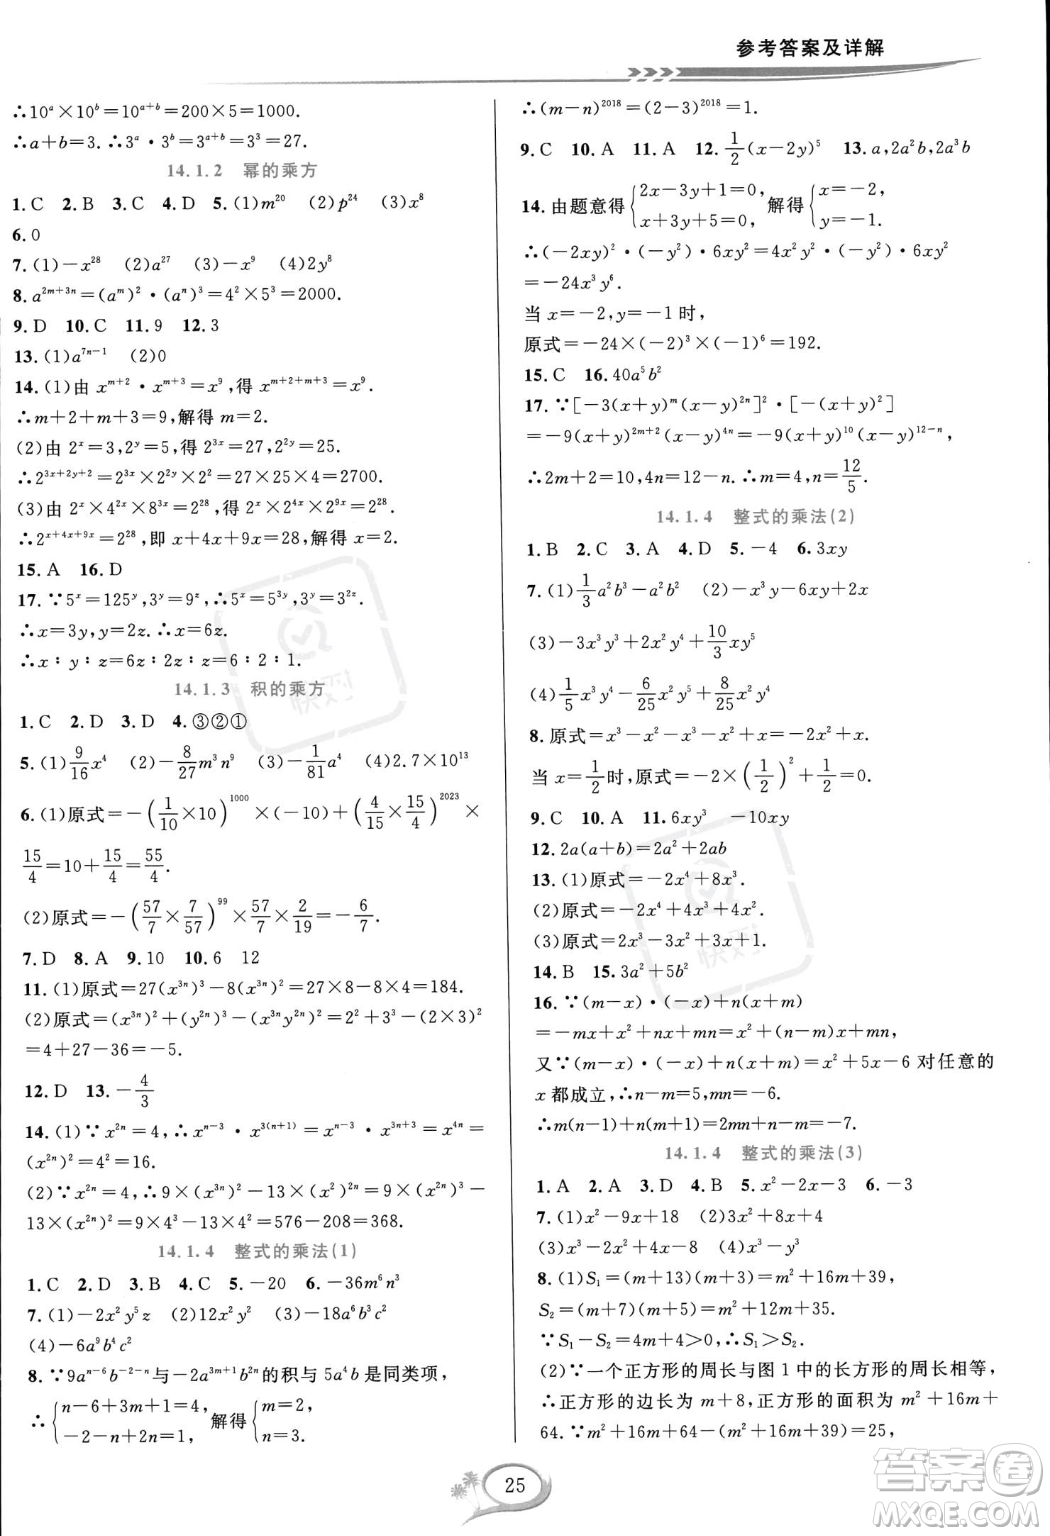 参考答案及详解
∴10ᵃ×10ᵇ=10ᵃ⁺ᵇ=200×5=1000.
∴a+b=3. ∴3ᵃ·3ᵇ=3ᵃ⁺ᵇ=3³=27.
14.1.2 幂的乘方
1.C 2.B 3.C 4.D 5.(1)m²⁰ (2)p²⁴ (3)x⁸
6.0
7.(1)-x²⁸ (2)a²⁷ (3)-x⁹ (4)2y⁸
8.a^{2m+3n}=(a^m)²·(a^n)³=4²×5³=2000.
9.D 10.C 11.9 12.3
13.(1)a^{7n-1} (2)0
14.(1)由 x^{m+2}·x^{m+3}=x⁹,得 x^{m+2+m+3}=x⁹.
∴m+2+m+3=9,解得 m=2.
(2)由 2^x=3,2^y=5,得 2^{3x}=27,2^{2y}=25.
∴2^{3x+2y+2}=2^{3x}×2^{2y}×2²=27×25×4=2700.
(3)由 2^x×4^{2x}×8^{3x}=2²⁸,得 2^x×2^{4x}×2^{9x}=2²⁸.
∴2^{x+4x+9x}=2²⁸,即 x+4x+9x=28,解得 x=2.
15.A 16.D
17.∵5^x=125^y,3^y=9^z,∴5^x=5^{3y},3^y=3^{2z}.
∴x=3y,y=2z.∴x=6z.
∴x∶y∶z=6z∶2z∶z=6∶2∶1.
14.1.3 积的乘方
1.C 2.D 3.D 4.③②①
5.(1)9/16 x⁴ (2)-8/27 m³n⁹ (3)-1/81 a⁴ (4)2.7×10¹³
6.(1)原式=-(1/10×10)^{1000}×(-10)+(4/15×15/4)^{2023}×
15/4=10+15/4=55/4.
(2)原式=-(57/7×7/57)^{99}×57/7×2/19=-6/7.
7.D 8.A 9.10 10.6 12
11.(1)原式=27(x^{3n})³-8(x^{3n})²=27×8-8×4=184.
(2)原式=(x^{3n})²+(y^{2n})³-(x^{3n}y^{2n})²=2²+3³-(2×3)²
=4+27-36=-5.
12.D 13.-4/3
14.(1)∵x^{2n}=4,∴x^{n-3}·x^{3(n+1)}=x^{n-3}·x^{3n+3}=x^{4n}=
(x^{2n})²=4²=16.
(2)∵x^{2n}=4,∴9×(x^{3n})²-13×(x²)^{2n}=9×(x^{2n})³-
13×(x^{2n})²=9×4³-13×4²=576-208=368.
14.1.4 整式的乘法(1)
1.C 2.D 3.B 4.C 5.-20 6.-36m⁶n³
7.(1)-2x²y⁵z (2)12x²y² (3)-18a⁶b³c²
(4)-6a⁹b⁴c²
8.∵9a^{n-6}b^{-2-n}与-2a^{3m+1}b^{2n}的积与 5a⁴b 是同类项,
∴{n-6+3m+1=4, -2-n+2n=1, 解得{m=2, n=3.
∴(m-n)²⁰¹⁸=(2-3)²⁰¹⁸=1.
9.C 10.A 11.A 12.1/2(x-2y)⁵ 13.a,2a²b,2a³b
14.由题意得{2x-3y+1=0, x+3y+5=0, 解得{x=-2, y=-1.
∴(-2xy)²·(-y²)·6xy²=4x²y²·(-y²)·6xy²
=-24x³y⁶.
当 x=-2,y=-1 时,
原式=-24×(-2)³×(-1)⁶=192.
15.C 16.40a⁵b²
17.∵[-3(x+y)^m(x-y)^{2n}]²·[-(x+y)²]
=-9(x+y)^{2m+2}(x-y)^{4n}=-9(x+y)¹⁰(x-y)^{12-n},
∴2m+2=10,4n=12-n.∴m=4,n=12/5.
14.1.4 整式的乘法(2)
1.B 2.C 3.A 4.D 5.-4 6.3xy
7.(1)1/3 a²b³-a²b² (2)-x³y-6xy+2x
(3)-3x³y³+2x²y⁴+10/3 xy⁵
(4)1/5 x³y²-6/25 x²y³+8/25 x²y⁴
8.原式=x³-x²-x³-x²+x=-2x²+x.
当 x=1/2时,原式=-2×(1/2)²+1/2=0.
9.C 10.A 11.6xy³ -10xy
12.2a(a+b)=2a²+2ab
13.(1)原式=-2x⁴+8x³.
(2)原式=-2x⁴+4x³+4x².
(3)原式=2x³-3x²-x.
14.B 15.3a²+5b²
16.∵(m-x)·(-x)+n(x+m)
=-mx+x²+nx+mn=x²+(n-m)x+mn,
又∵(m-x)·(-x)+n(x+m)=x²+5x-6 对任意的
x 都成立,∴n-m=5,mn=-6.
∴m(n-1)+n(m+1)=-7.
14.1.4 整式的乘法(3)
1.A 2.B 3.A 4.D 5.x²-2x-3 6.-3
7.(1)x²-9x+18 (2)-2x²+8x+4
(3)x³-5x²+4x-8 (4)x³-y³
8.(1)S₁=(m+13)(m+3)=m²+16m+39,
S₂=(m+7)(m+5)=m²+12m+35.
∵S₁-S₂=4m+4>0,∴S₁>S₂.
(2)∵一个正方形的周长与图 1 中的长方形的周长相等,
∴正方形的边长为 m+8,正方形的面积为 m²+16m+
64.∵m²+16m+64-(m²+16m+39)=25,
25
快对
快对
答案圈
MXQE.COM